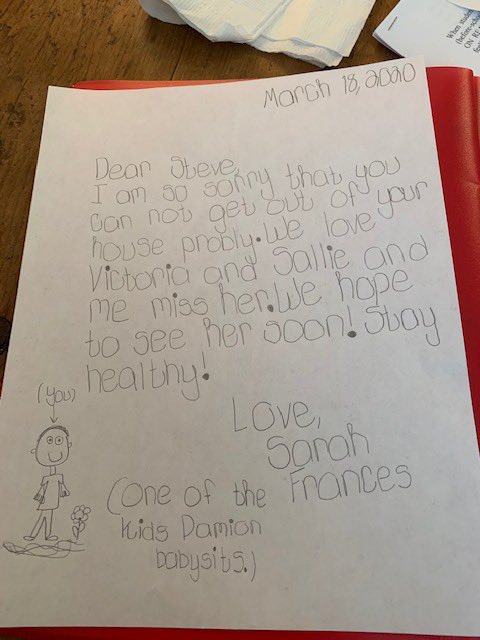 When sta
(before-sch
ON RE
fee
March 18, 2020
Dear Steve,
I am so sorry that you
can not get out of your
house probly. We love
Victoria and Sallie and
me miss her. We hope
to see her soon! Stay
healthy!
(you)
Love,
Sarah
Frances
(One of the
kids Damion
babysits.)